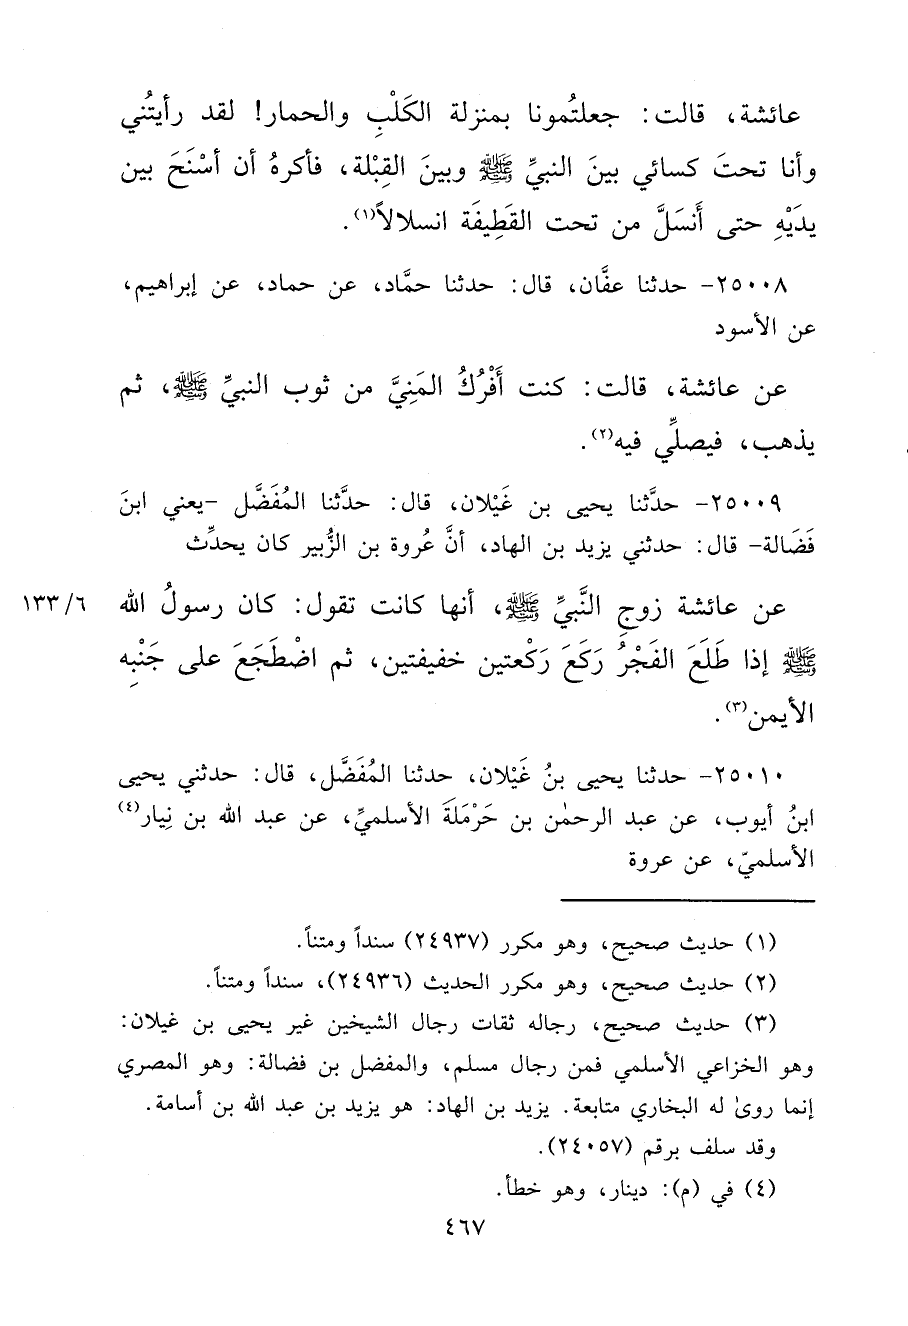 عائشة، قالت: جعلتُمونا بمنزلة الكَلْبِ والحمار! لقد رأيتُني
وأنا تحتَ كسائي بينَ النبيِّ ﷺ وبينَ القِبْلة، فأكرهُ أن أسْنَحَ بين
يديْهِ حتى أَنسَلَّ من تحت القَطِيفَة انسلالاً(١).
٢٥٠٠٨- حدثنا عفَّان، قال: حدثنا حمَّاد، عن حماد، عن إبراهيم،
عن الأسود
عن عائشة، قالت: كنت أَفْرُكُ المَنِيَّ من ثوب النبيِّ ﷺ، ثم
يذهب، فيصلِّي فيه(٢).
٢٥٠٠٩- حدَّثنا يحيى بن غَيْلان، قال: حدَّثنا المُفَضَّل -يعني ابنَ
فَضَالة- قال: حدثني يزيد بن الهاد، أنَّ عُروة بن الزُّبير كان يحدِّث
عن عائشة زوجِ النَّبيِّ ﷺ، أنها كانت تقول: كان رسولُ الله
١٣٣/٦
ﷺ إذا طَلَعَ الفَجْرُ رَكَعَ رَكْعتين خفيفتين، ثم اضْطَجَعَ على جَنْبِه
الأيمن(٣).
٢٥٠١٠- حدثنا يحيى بنُ غَيْلان، حدثنا المُفَضَّل، قال: حدثني يحيى
ابنُ أيوب، عن عبد الرحمٰن بن حَرْمَلَةَ الأسلميِّ، عن عبد الله بن نِيار(٤)
الأسلميّ، عن عروة
(١) حديث صحيح، وهو مكرر (٢٤٩٣٧) سنداً ومتناً.
(٢) حديث صحيح، وهو مكرر الحديث (٢٤٩٣٦)، سنداً ومتناً.
(٣) حديث صحيح، رجاله ثقات رجال الشيخين غير يحيى بن غيلان:
وهو الخزاعي الأسلمي فمن رجال مسلم، والمفضل بن فضالة: وهو المصري
إنما روىٰ له البخاري متابعة. يزيد بن الهاد: هو يزيد بن عبد الله بن أسامة.
وقد سلف برقم (٢٤٠٥٧).
(٤) في (م): دينار، وهو خطأ.
٤٦٧